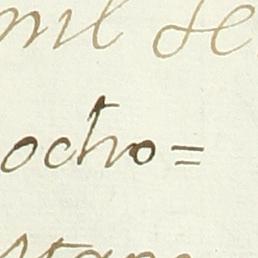 mil se
ocho=